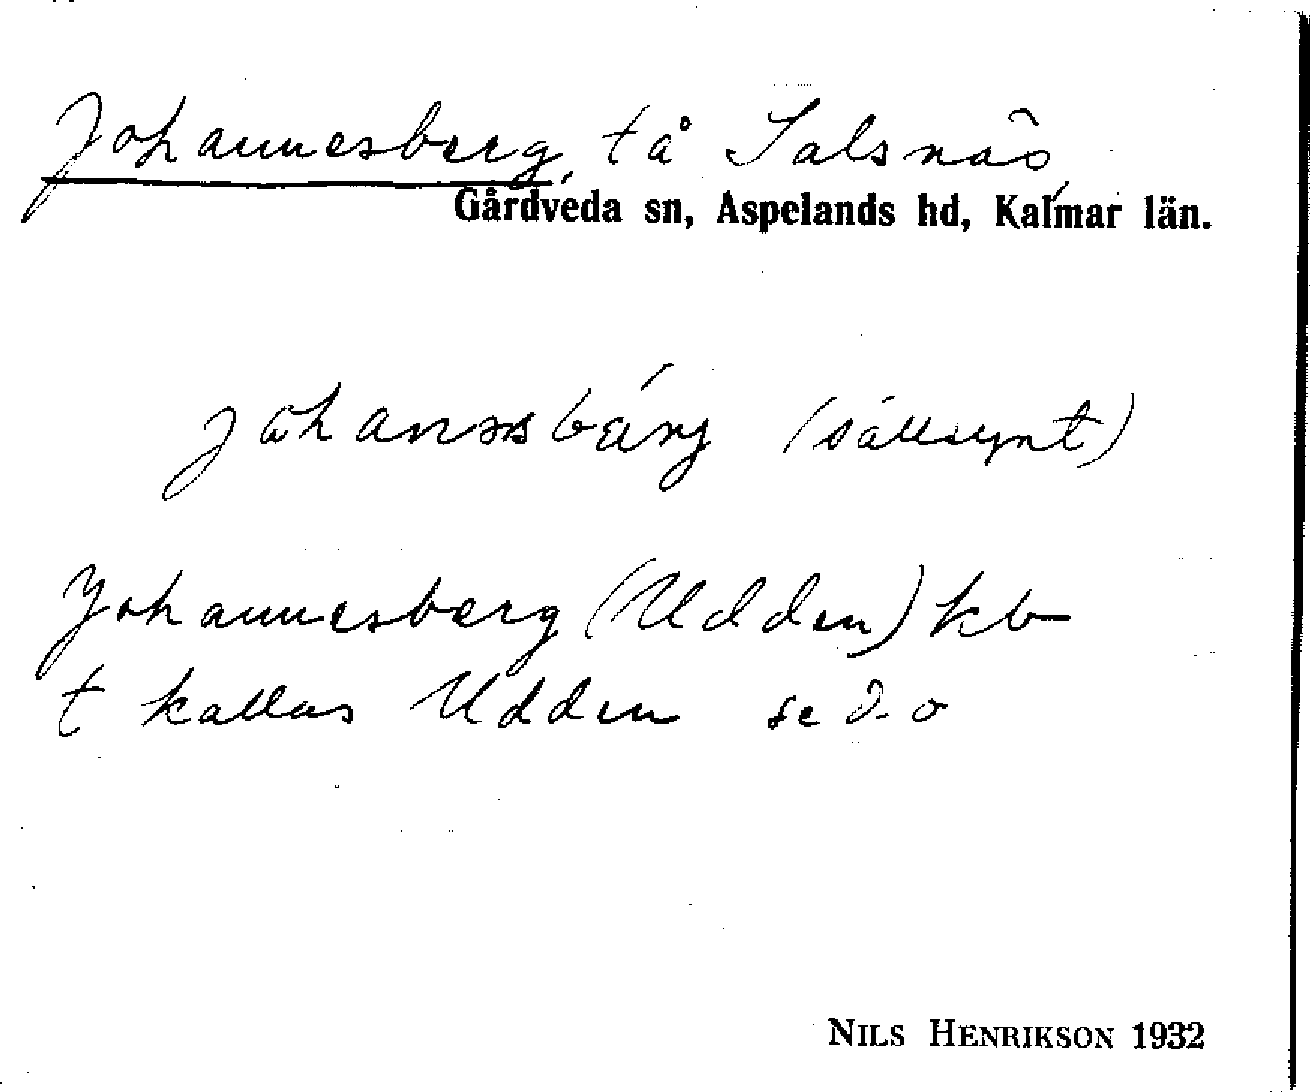 Johannesberg, tå Salsnäs,
Gårdveda sn, Aspelands hd, Kalmar län.
(sällsynt)
Johannesberg (Udden) kb
t kallas Udden se d. o
NILS HENRIKSON 1932